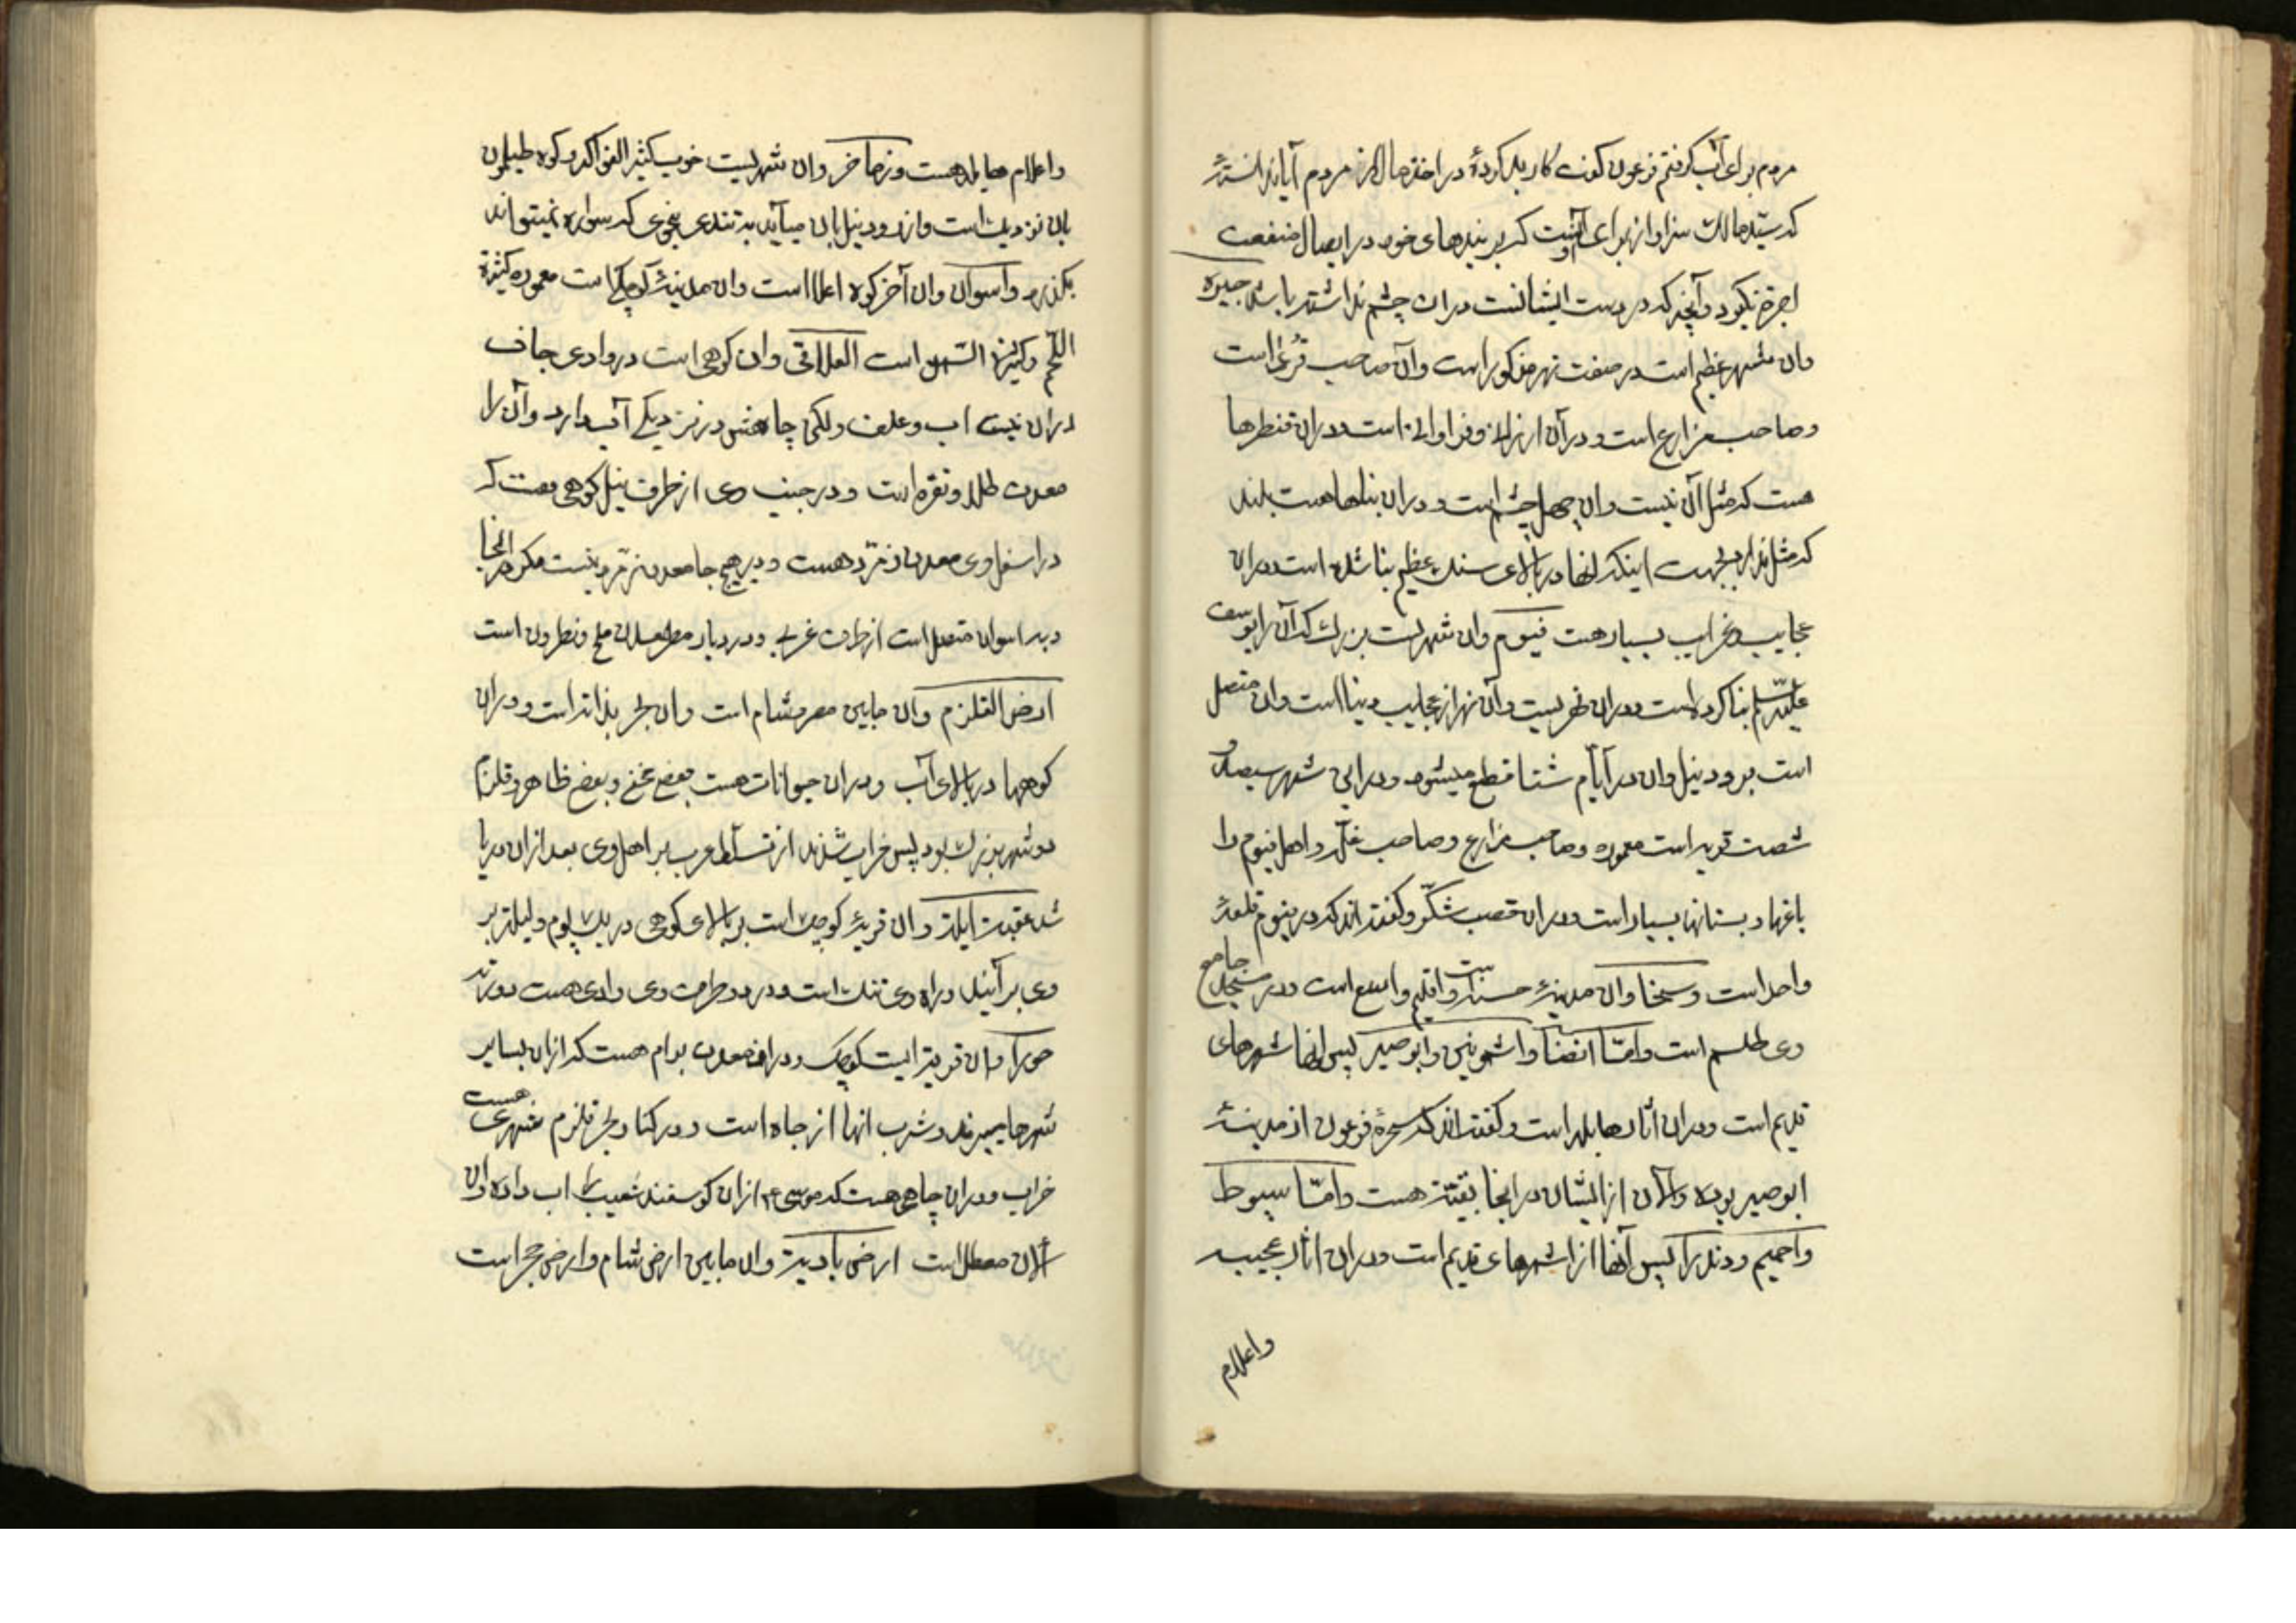 مردم برای آب گرفتم فرعون گفت کار بد کردهٔ در اخذ مال از مردم آیا ندانستهٔ
که سید مالک سزاوار برای آنست که بر بندهای خود در ایصال منفعت
اجرة نگیرد و آنچه که در دست ایشانست دران چشم نداشته باشد جیزه
وان شهر عظیم است در ضفت نهر مذکور است وآن صاحب قُریٰ است
و صاحب مزارع است و در آن ارزانی و فراوانی است و دران قنطرها
هست که مثل آن نیست وان چهل چشم است و دران بناها هست بلند
که مثل ندارد بجهت اینکه انها در بالای سنك عظیم بنا شده است و دران
عجایب و غرایب بسیار هست فیوم وان شهریست بزرك که آن را یوسف
علیه السلام بنا کرده است و دران نهریست وآن نهر از عجایب دنیا است وان متصل
است برود نیل وان در ایّام شتا قطع میشود و در این شهر سیصد و
شصت قریه است معموره و صاحب مزارع و صاحب غلّه و اهل فیوم را
باغها و بستانها بسیار است و دران قصب شکّر و گفته اند که در فیوم قلعهٔ
واحد است و سخا وان مدینهٔ حسنه است و اقلیم واسع است و در مسجد جامع
وی طلسم است وامّا انصنا و اشمونین و ابوصیر پس انها شهرهای
قدیم است و دران آثار هایله است و گفته اند که سحرهٔ فرعون از مدینهٔ
ابوصیر بوده و الآن از ایشان در انجا بقیّة هست وامّا سیوط
و اخمیم و دندرا پس آنها از شهرهای قدیم است و دران اثار عجیبه
واعلام
واعلام هایله هست و زماخر وان شهریست خوب کثیر الفواکه و کوه طیلمون
بان نزدیك است و از رود نیل بان میآید به تندی بنحوی که سواره نمیتواند
بگذرد واسوان وان آخر کوه اعلا است وان مدینهٔ کوچکی است معموره کثیرة
اللّحم و کثیرة السّمن است العلاقی وان کوهی است در وادی جاف
دران نیست اب و علف ولکن چاهش در نزدیکی آب دارد وآن را
معدن طلا و نقره است و در جنب وی از طرف نیل کوهی هست که
در اسفل وی معدن زمرّد هست و در هیچ جا معدن زمرّد نیست مگر در انجا
و به اسوان متصل است از طرف غربی و در دیار مصر معدن ملح و نطرون است
ارض القلزم وان مابین مصر و شام است وان بحر بذاته است و دران
کوهها در بالای آب و دران حیوانات هست بعضی مخفی و بعضی ظاهر و قلزم
دو شهر بزرك بود پس خراب شدند از تسلّط عرب بر اهل وی بعد از ان دریا
شد عقبت ایلة وان قریهٔ کوچك است بر بالای کوهی در یك یوم و لیلة بر
وی برآیند و راه وی تنك است و در دو طرف وی وادی هست دورتر
حورا وان قریة ایست کوچک و دران معدن برام هست که ازان بسایر
شهرها میبرند و شرب انها از چاه است و در کنار بحر قلزم شهری هست
خراب و دران چاهی هست که موسی ع ازان کوسفند شعیب را اب داده وان
الآن معطل است ارض بادیة وان مابین ارض شام و ارض حجر است